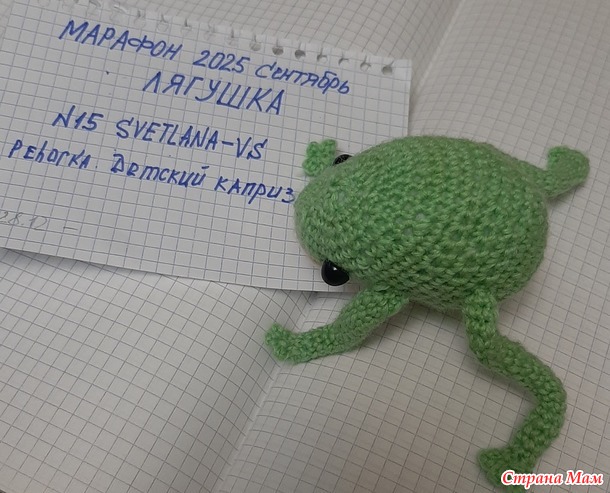 МАРАФОН 2025 Сентябрь
ЛЯГУШКА
N15 SVETLANA-VS
Пехорка Детский каприз
28.12 -
Страна Мам